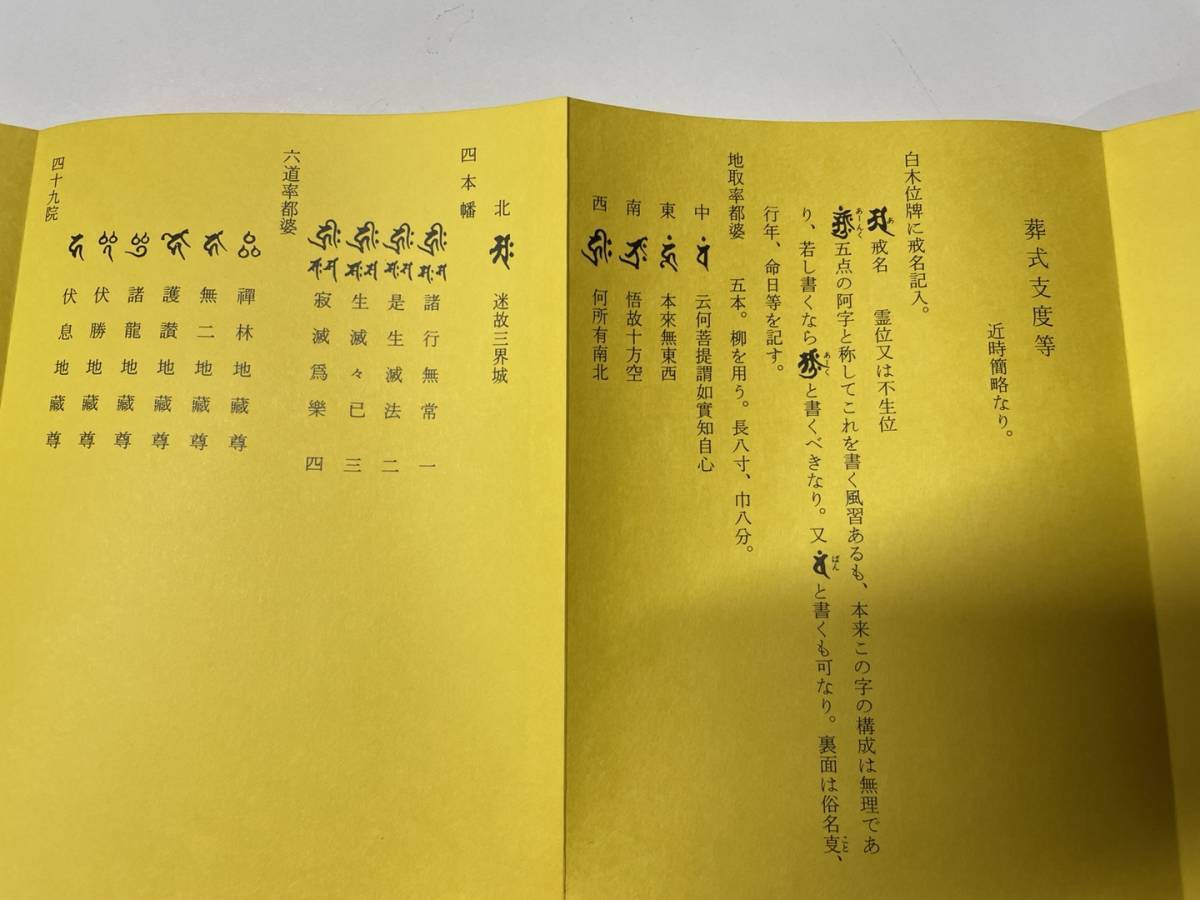 葬式支度等
近時簡略なり。
白木位牌に戒名記入。
𑖀 戒名 霊位又は不生位
五点の阿字と称してこれを書く風習あるも、本来この字の構成は無理であ
り、若し書くなら と書くべきなり。又 と書くも可なり。裏面は俗名㕝、
行年、命日等を記す。
地取率都婆 五本。柳を用う。長八寸、巾八分。
中 云何菩提謂如實知自心
東 本來無東西
南 悟故十方空
西 何所有南北
北 迷故三界城
四本幡
諸行無常 一
是生滅法 二
生滅々已 三
寂滅爲樂 四
六道率都婆
禪林地藏尊
無二地藏尊
護讃地藏尊
諸龍地藏尊
伏勝地藏尊
伏息地藏尊
四十九院